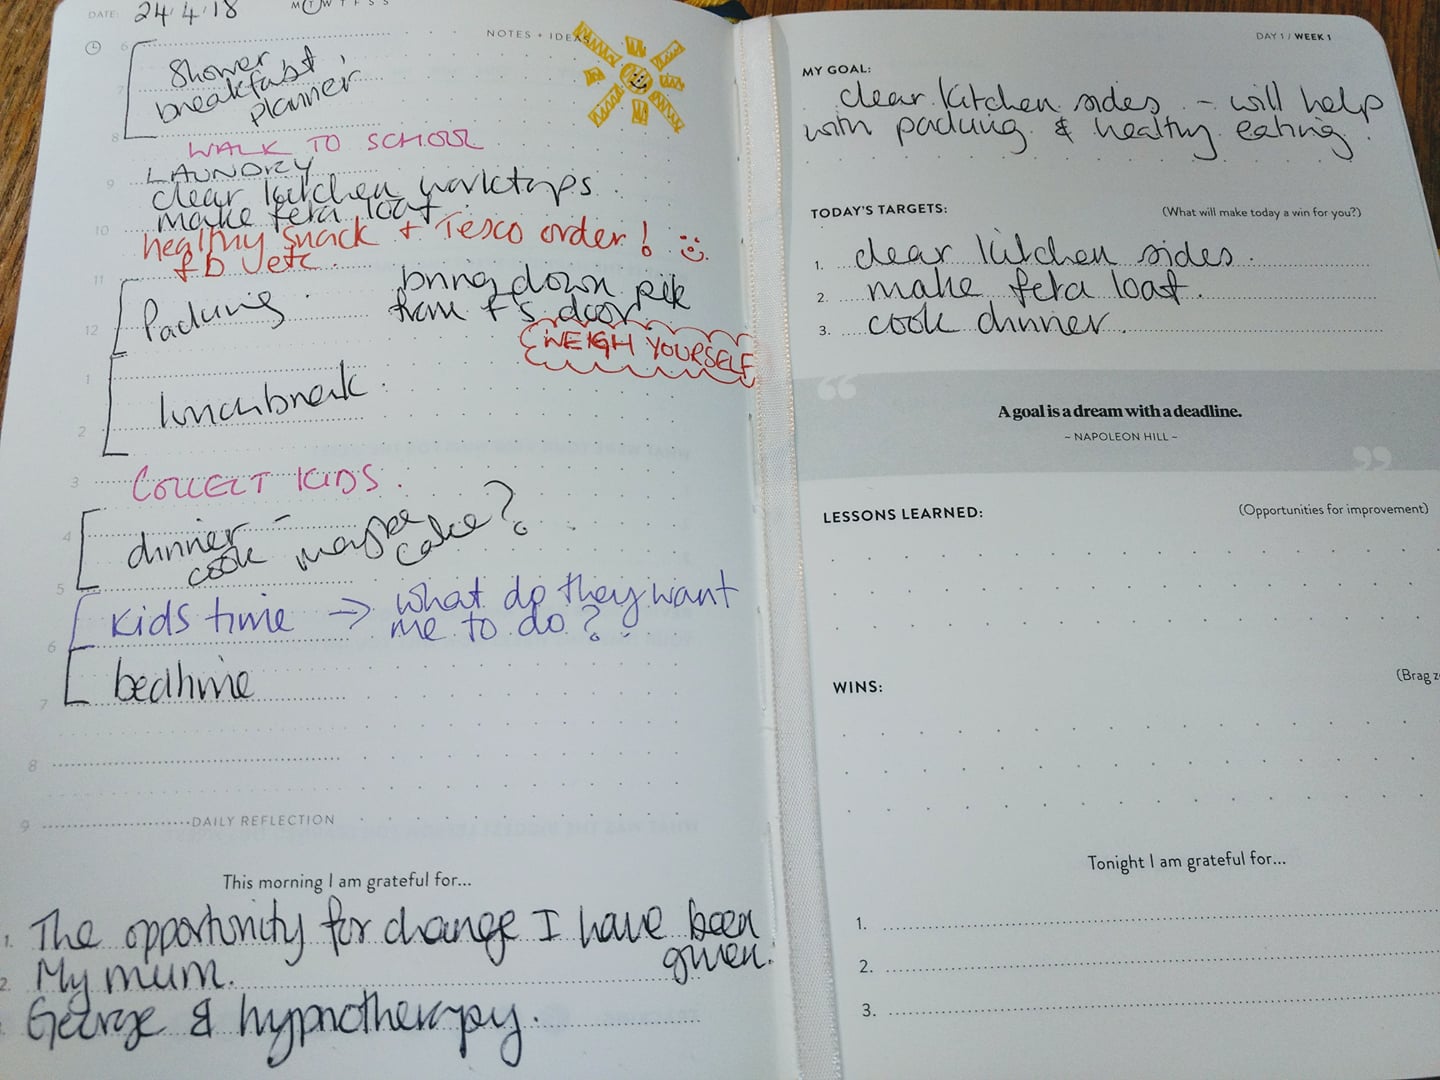 DATE: 24/4/18 M T W T F S S
NOTES + IDEAS
6
Shower
breakfast,
7
planner
8
WALK TO SCHOOL
LAUNDRY
9
clear kitchen worktops
make feta loaf.
10
healthy snack + Tesco order!
fb vetc.
11
Packing.
bring down
from F's door.
12
WEIGH YOURSELF
1
lunchbreak.
2
3
COLLECT KIDS.
4
dinner -
cook maybe
cake?
5
Kids time → what do they want
me to do?
6
bedtime
7
8
9
DAILY REFLECTION
This morning I am grateful for...
1. The opportunity for change I have been
given.
2. My mum.
George & hypnotherapy.
DAY 1 / WEEK 1
MY GOAL:
clear kitchen sides - will help
with packing & healthy eating.
TODAY'S TARGETS: (What will make today a win for you?)
1. clear kitchen sides.
2. make feta loaf.
3. cook dinner.
“
A goal is a dream with a deadline.
~ NAPOLEON HILL ~
”
LESSONS LEARNED: (Opportunities for improvement)
WINS: (Brag z
Tonight I am grateful for...
1.
2.
3.